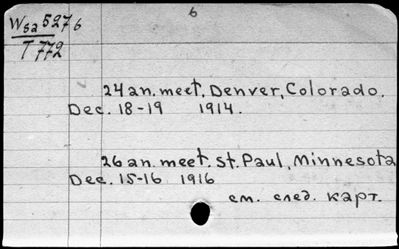 6
Wsa 5276
T 772
24 an. meet. Denver, Colorado.
Dec. 18-19 1914.
26 an. meet. St. Paul, Minnesota
Dec. 15-16 1916
см. след. карт.